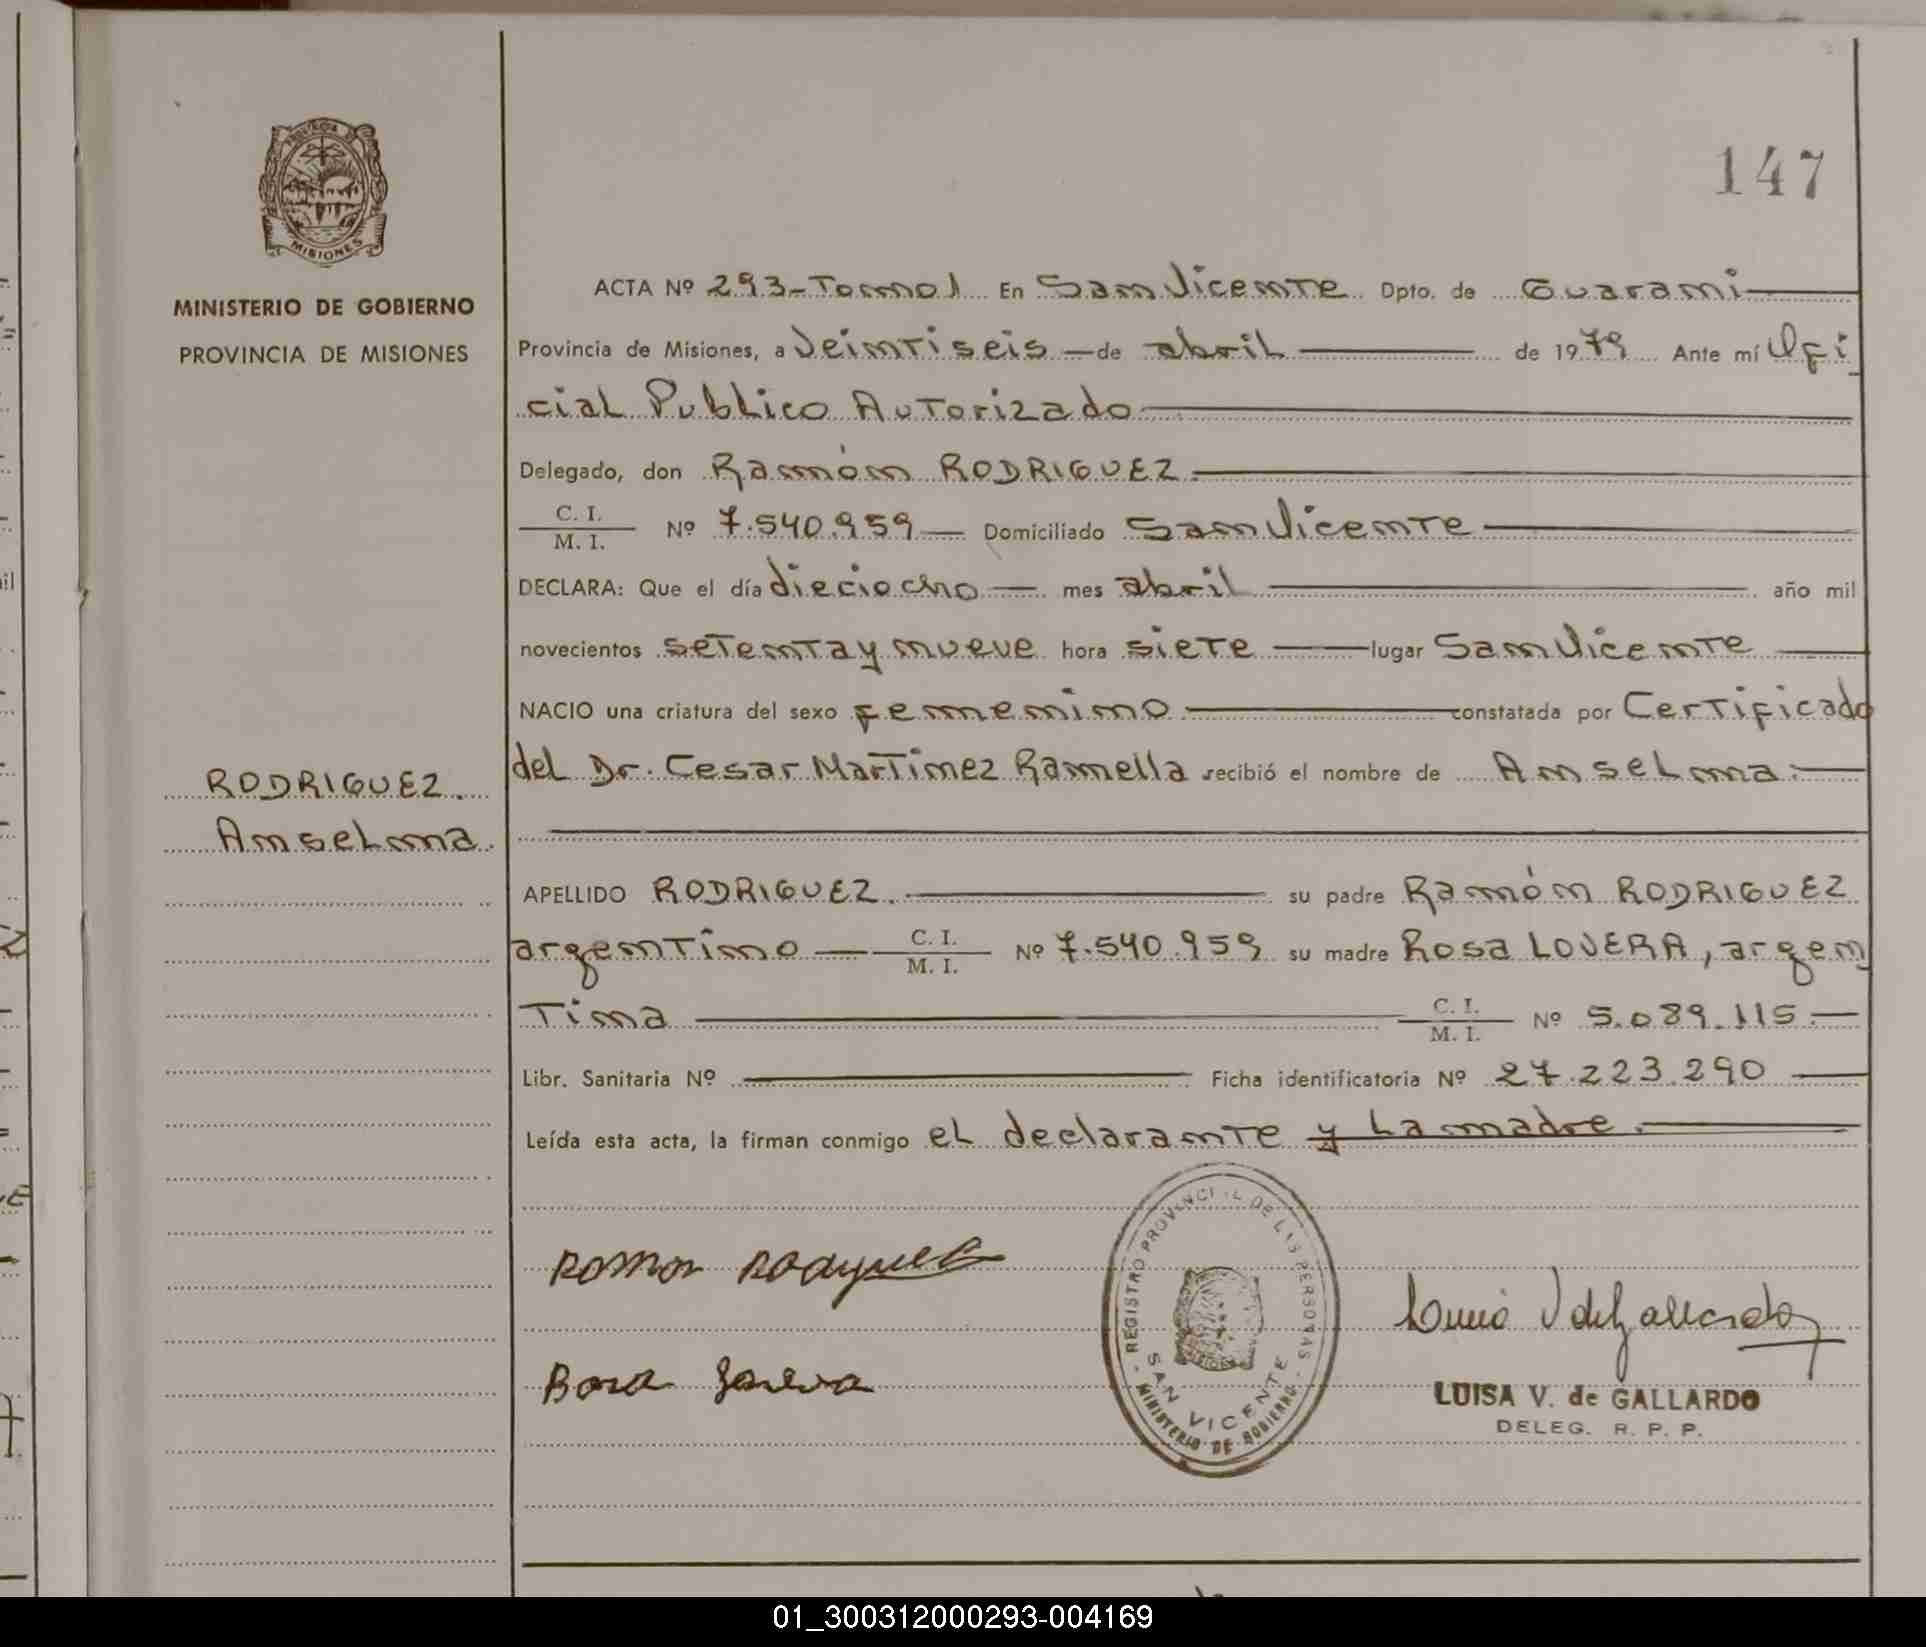 147
PROVINCIA DE
MISIONES
MINISTERIO DE GOBIERNO
PROVINCIA DE MISIONES
ACTA Nº 293-Tomo I En San Vicente Dpto. de Guarani
Provincia de Misiones, a Veintiseis de abril de 1979 Ante mí Ofi
cial Publico Autorizado
Delegado, don Ramón RODRIGUEZ
C. I.
M. I. Nº 7.540.959 Domiciliado San Vicente
DECLARA: Que el día dieciocho mes abril año mil
novecientos setenta y nueve hora siete lugar San Vicente
NACIO una criatura del sexo femenino constatada por Certificado
del Dr. Cesar Martinez Ramella recibió el nombre de Anselma.
RODRIGUEZ.
Anselma.
APELLIDO RODRIGUEZ. su padre Ramón RODRIGUEZ
argentino C. I.
M. I. Nº 7.540.959 su madre Rosa LOVERA, argen
tina C. I.
M. I. Nº 5.089.115.
Libr. Sanitaria Nº Ficha identificatoria Nº 27.223.290
Leída esta acta, la firman conmigo el declarante y la madre.
REGISTRO PROVINCIAL DE LAS PERSONAS
SAN VICENTE
MINISTERIO DE GOBIERNO
LUISA V. de GALLARDO
DELEG. R. P. P.
01_300312000293-004169